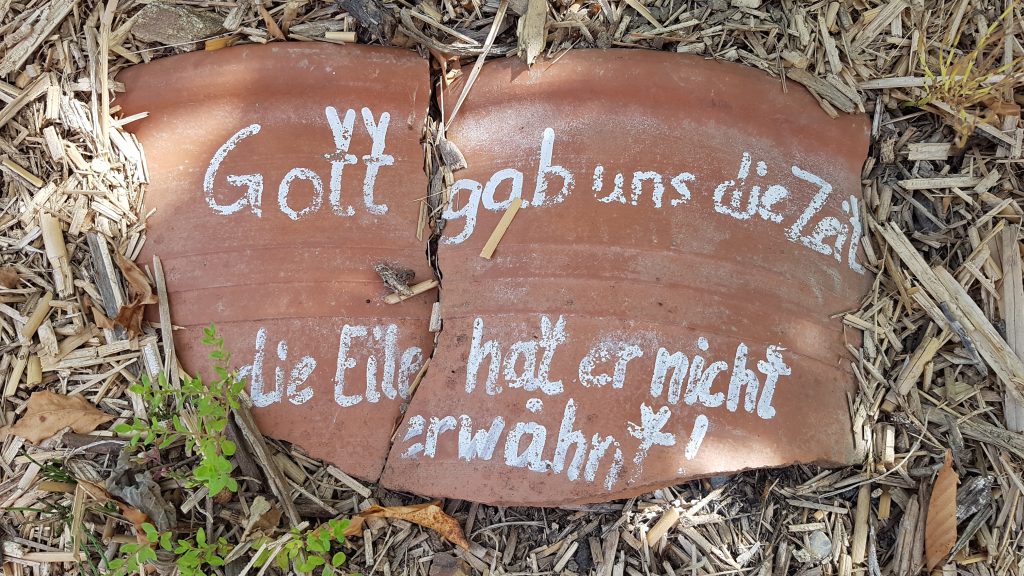 Gott gab uns die Zeit
die Eile hat er nicht
erwähnt!